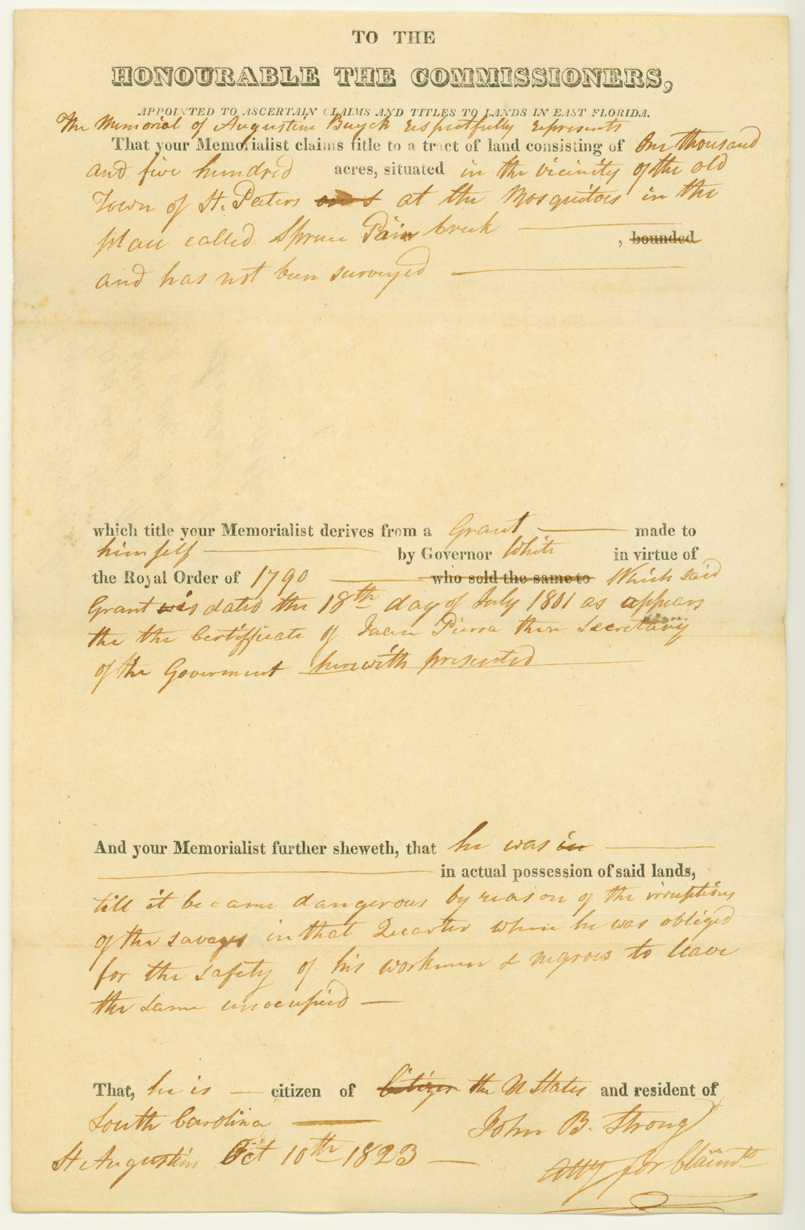 TO THE
HONOURABLE THE COMMISSIONERS,
APPOINTED TO ASCERTAIN CLAIMS AND TITLES TO LANDS IN EAST FLORIDA.
The Memorial of Augustin Buyck respectfully represents
That your Memorialist claims title to a tract of land consisting of One thousand
and five hundred acres, situated in the vicinity of the old
Town of St. Peters at the Mosquitoes in the
place called Spruce Pain creek , bounded
and has not been surveyed
which title your Memorialist derives from a Grant made to
himself by Governor White in virtue of
the Royal Order of 1790 who sold the same to Which said
Grant is dated the 18th day of July 1801 as appears
the the Certificate of Juan Pierra then Secretary
of the Goverment herewith presented
And your Memorialist further sheweth, that he was in
in actual possession of said lands,
till it became dangerous by reason of the irruptions
of the savages in that Quarter when he was obliged
for the safety of his workmen & negroes to leave
the same unoccupied
That, he is citizen of Citizen the U States and resident of
South Carolina John B. Strong
St Augustin Oct 10th 1823 Atty for Claimt